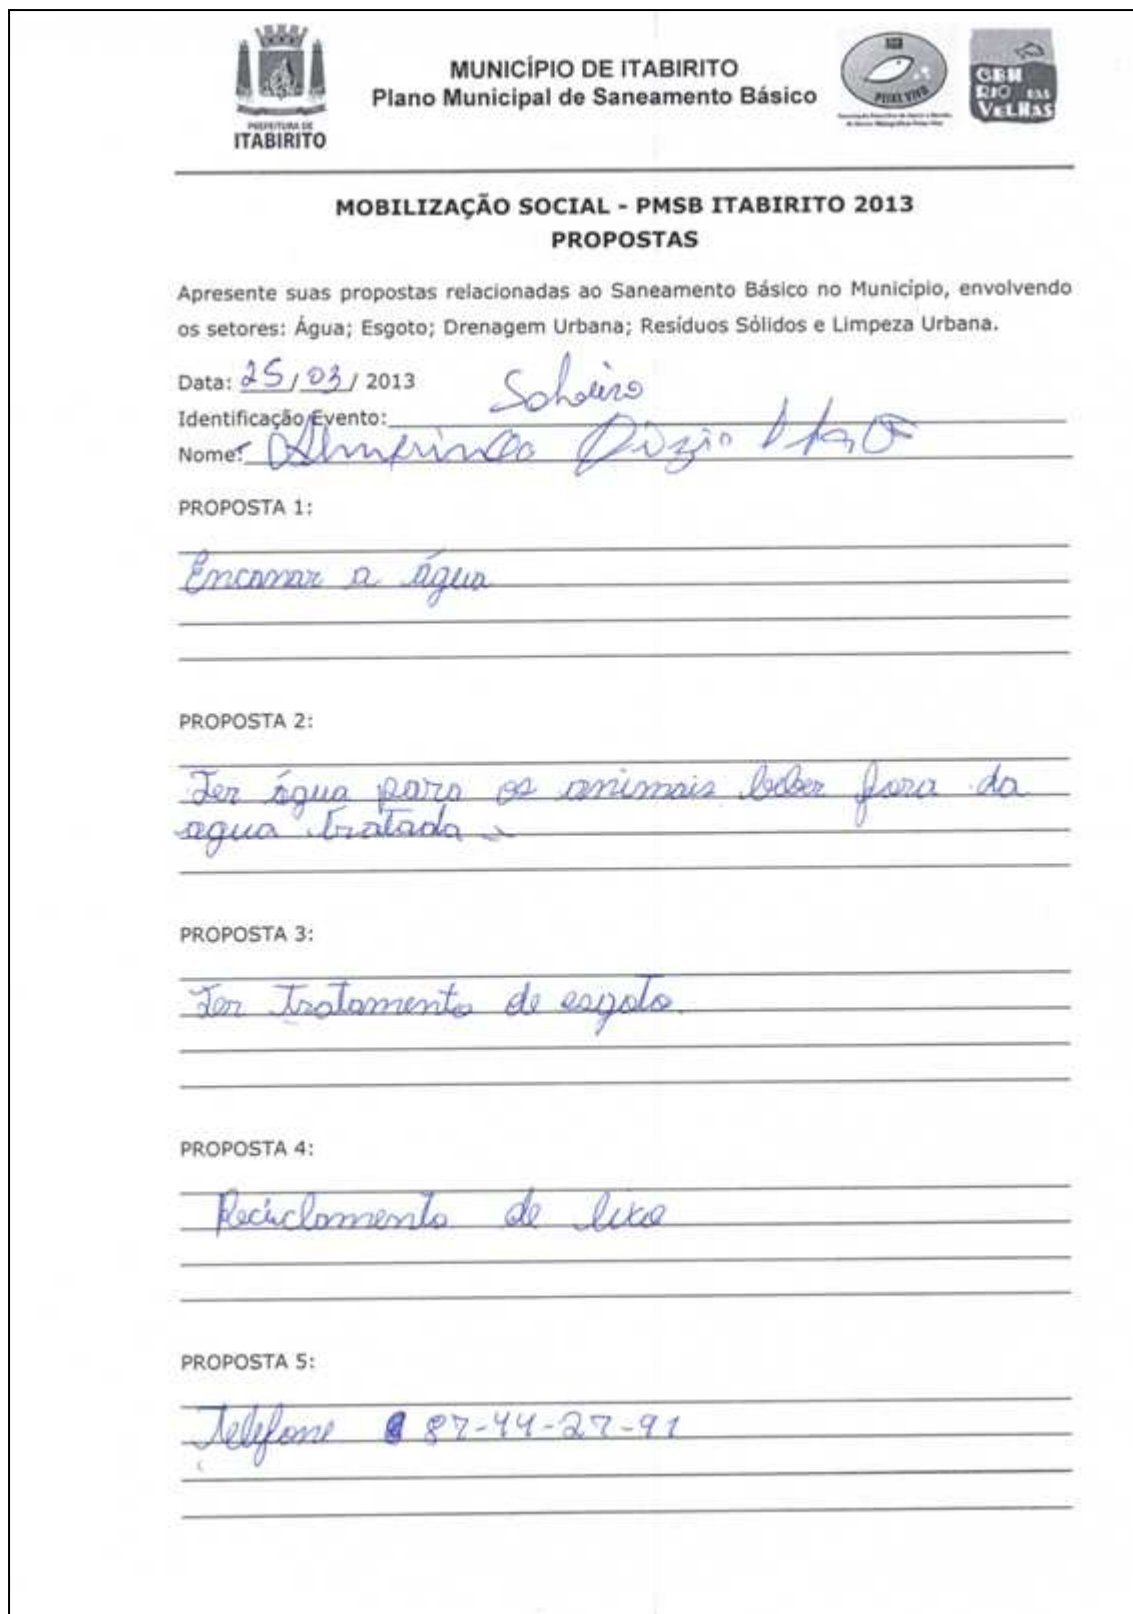 PREFEITURA DE
ITABIRITO
MUNICÍPIO DE ITABIRITO
Plano Municipal de Saneamento Básico
PEIXE VIVO
CBH
RIO DAS
VELHAS
MOBILIZAÇÃO SOCIAL - PMSB ITABIRITO 2013
PROPOSTAS
Apresente suas propostas relacionadas ao Saneamento Básico no Município, envolvendo
os setores: Água; Esgoto; Drenagem Urbana; Resíduos Sólidos e Limpeza Urbana.
Data: 25/03/ 2013
Identificação Evento:
Nome:
PROPOSTA 1:
Encanar a água
PROPOSTA 2:
Ter água para os animais beber fora da
agua tratada
PROPOSTA 3:
Ter Tratamento de esgoto.
PROPOSTA 4:
Reciclamento de lixo
PROPOSTA 5:
Telefone 87-44-27-91